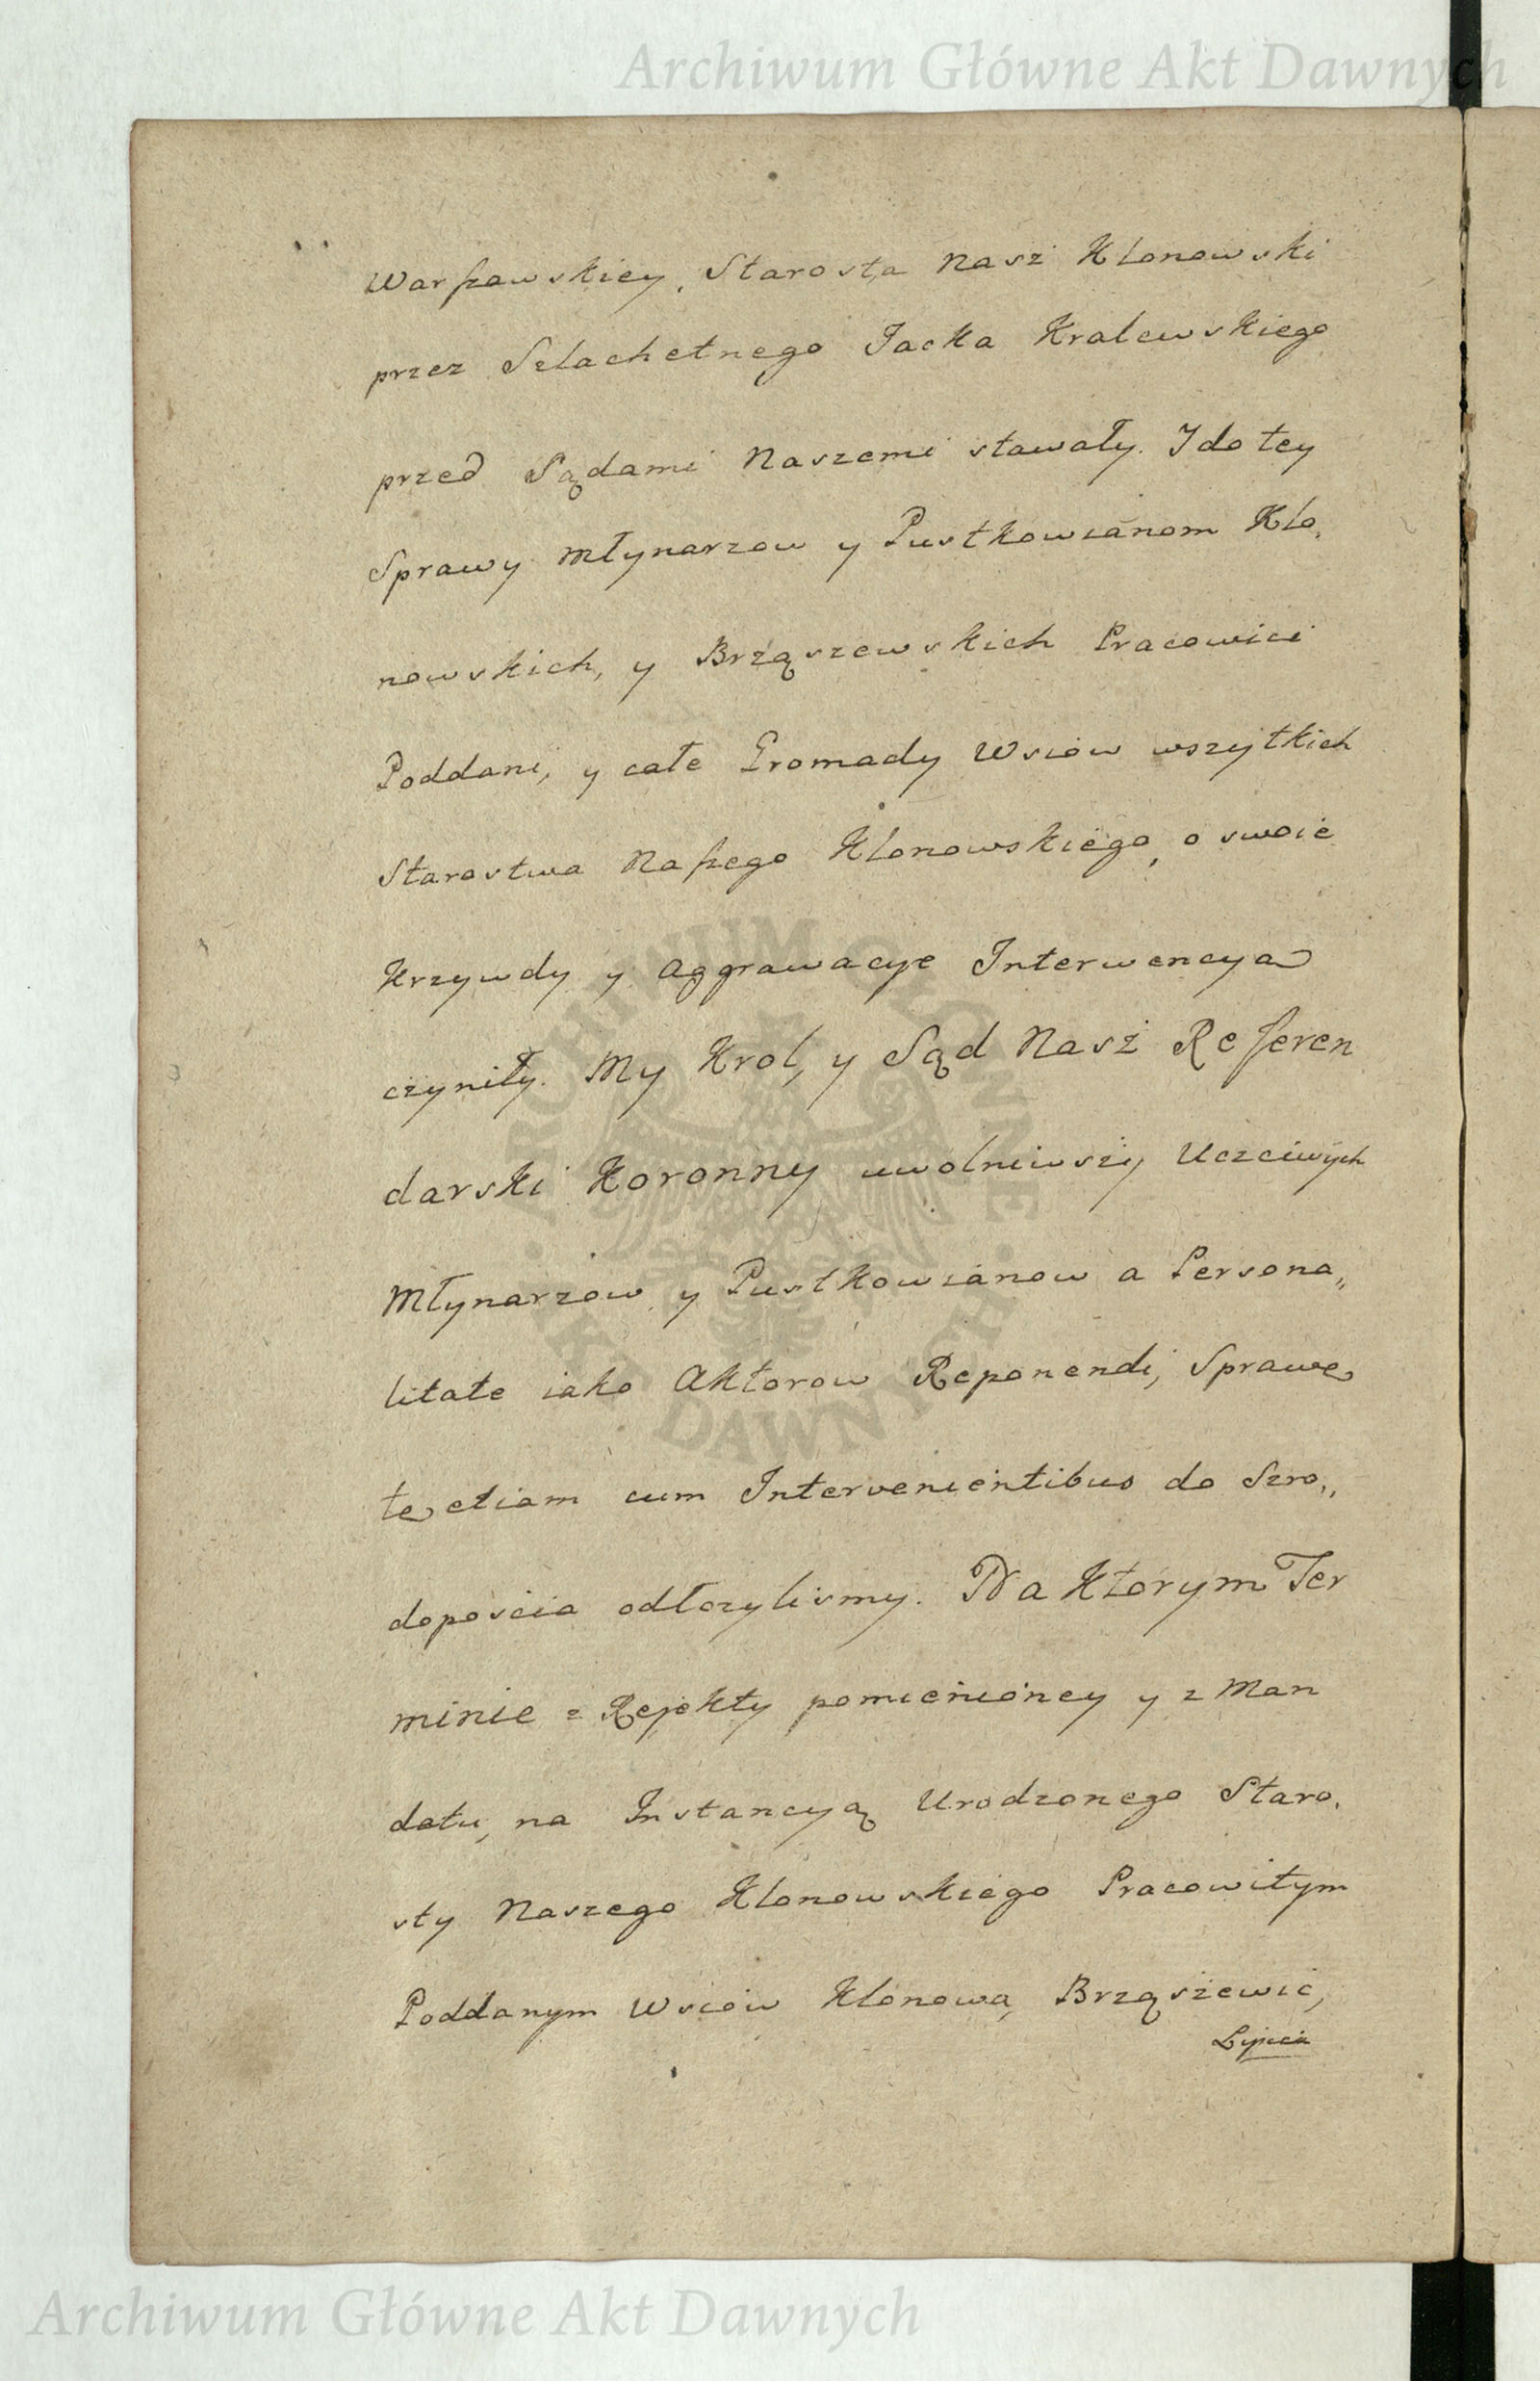 Archiwum Główne Akt Dawnych
Warszawskiey, Starosta Nasz Klonowski
przez Szlachetnego Jacka Kralewskiego
przed Sądami Naszemi stawały. I do tey
Sprawy Młynarzow y Pustkowianom Klo,
nowskich, y Brząszewskich Pracowici
Poddani, y całe Gromady Wsiow wszystkich
Starostwa Naszego Klonowskiego, o swoie
Krzywdy y Aggrawacye Interwencya
czyniły. My Krol, y Sąd Nasz Referen
darski Koronny uwolniwszy Uczciwych
Młynarzow y Pustkowianow a Persona„
litate iako Aktorow Reponendi, Sprawę
tę etiam cum Intervenientibus do Szro„
doposcia odłozylismy. Na Ktorym Ter
minie z Rejekty pomienioney y z Man
datu, na Instancyą Urodzonego Staro,
sty Naszego Klonowskiego Pracowitym
Poddanym Wsiow Klonowa, Brząszewic,
Lipicza
ARCHIWUM GŁÓWNE
AKT DAWNYCH
Archiwum Główne Akt Dawnych